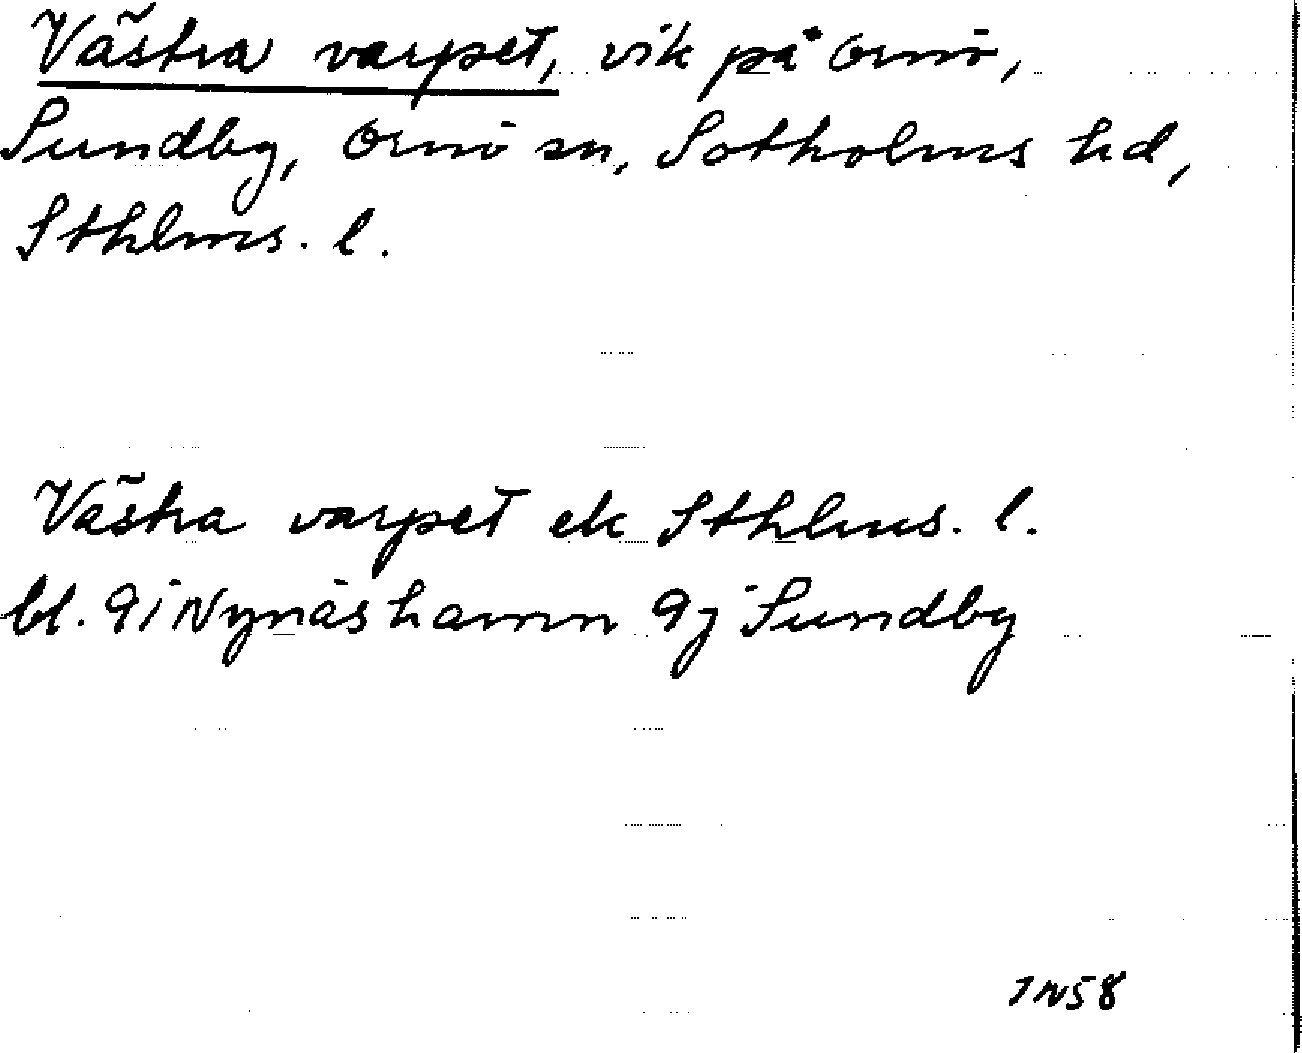 Västra varpet, vik på Ornö,
Sundby, Ornö sn, Sotholms hd,
Sthlms. l.
Västra varpet ek Sthlms. l.
bl. 9i Nynäshamn 9j Sundby
IN58